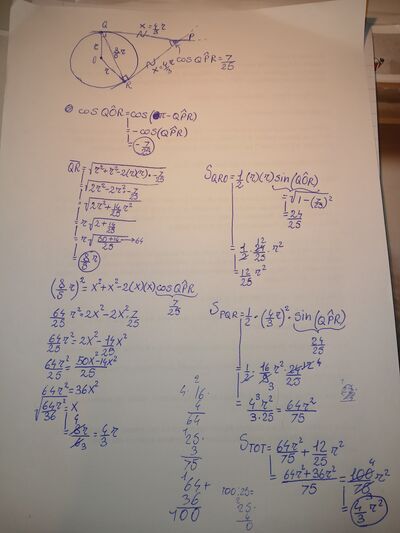 Q
x = 4/3 r
P
r
8/5 r
O
r
x = 4/3 r
cos QP̂R = 7/25
R
cos QÔR = cos(π - QP̂R)
= -cos(QP̂R)
= -7/25
QR = √(r² + r² - 2(r)(r) · -7/25)
= √(2r² - 2r² · -7/25)
= √(2r² + 14/25 r²)
= r √(2 + 14/25)
= r √((50+14)/25) → 64
= 8/5 r
S_QRO = 1/2 (r)(r) sin(QÔR)
= √(1 - (7/25)²)
= 24/25
= 1/2 · 24/25 · r²
12
= 12/25 r²
(8/5 r)² = x² + x² - 2(x)(x) cos QP̂R
7/25
64/25 r² = 2x² - 2x² · 7/25
64/25 r² = 2x² - 14/25 x²
64r²/25 = (50x² - 14x²)/25
64r² = 36x²
√(64r²/36) = x
= 8r/6 = 4/3 r
4 3
S_PQR = 1/2 · (4/3 r)² · sin(QP̂R)
24/25
= 1/2 · 16/9 r² · 24/25
= 4³r²/(3·25) = 64r²/75
2
4·16·
4
64
25·
3
75
64+
36
100
100:25=
25
4
0
S_TOT = 64r²/75 + 12/25 r²
= (64r² + 36r²)/75 = 100/75 r²
4
3
= 4/3 r²